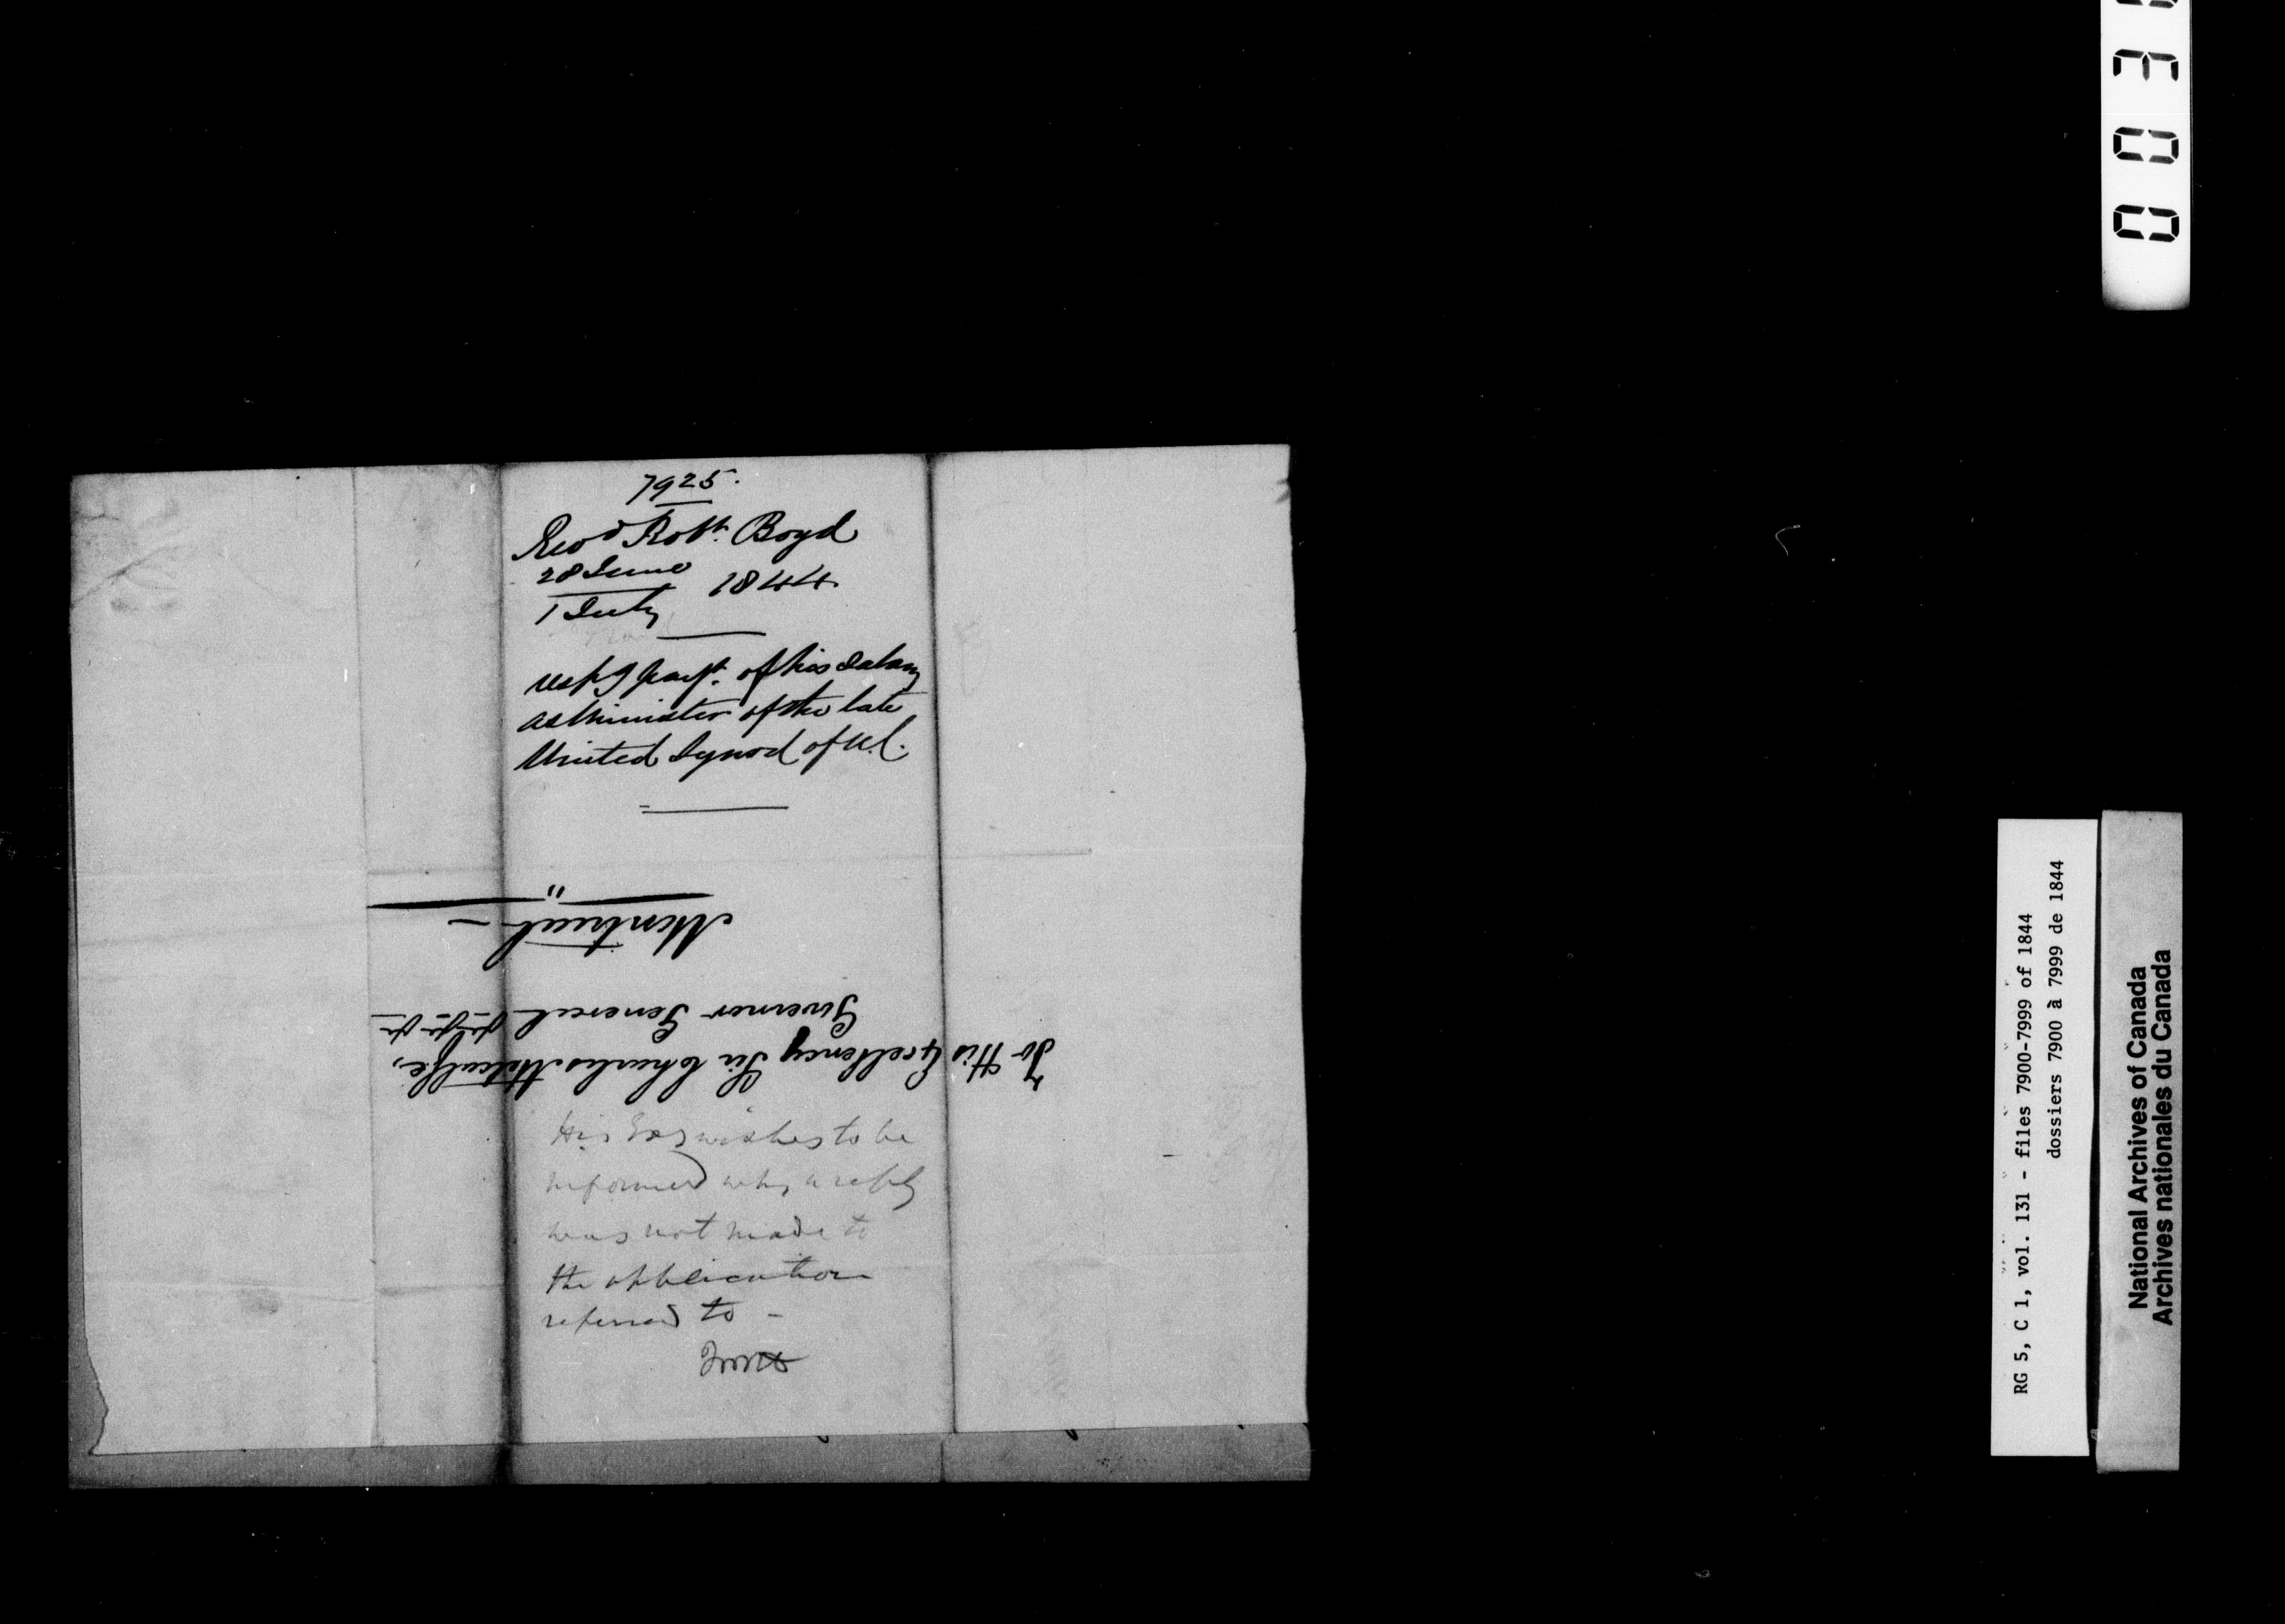 7925.
Revd Robt. Boyd
28 June
1 July
1844
respg payt. of his Salary
as Minister of the late
United Synod of U.C.
To His Excellency Sir Charles Metcalfe,
Governor General &c &c &c
Montreal -
His Exy wishes to be
informed why a reply
was not made to
the application
referred to -
RG 5, C 1, vol. 131 - files 7900-7999 of 1844
dossiers 7900 à 7999 de 1844
National Archives of Canada
Archives nationales du Canada
0 0 3